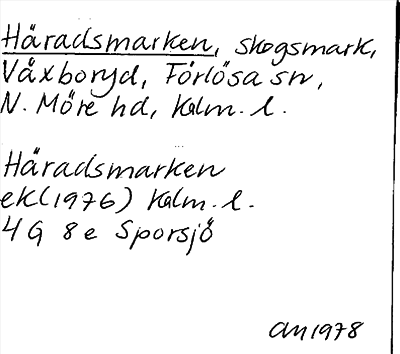 Häradsmarken, skogsmark,
Växboryd, Förlösa sn,
N. Möre hd, Kalm. l.
Häradsmarken
ek (1976) Kalm. l.
4 G 8 e Sporsjö
AM 1978